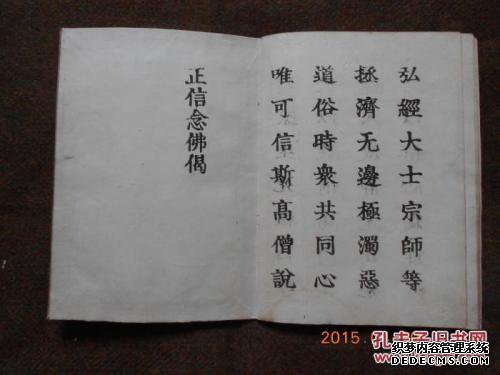 弘經大士宗師等
拯濟无邊極濁惡
道俗時衆共同心
唯可信斯髙僧說
正信念佛偈
2015.
孔夫子旧书网
织梦内容管理系统